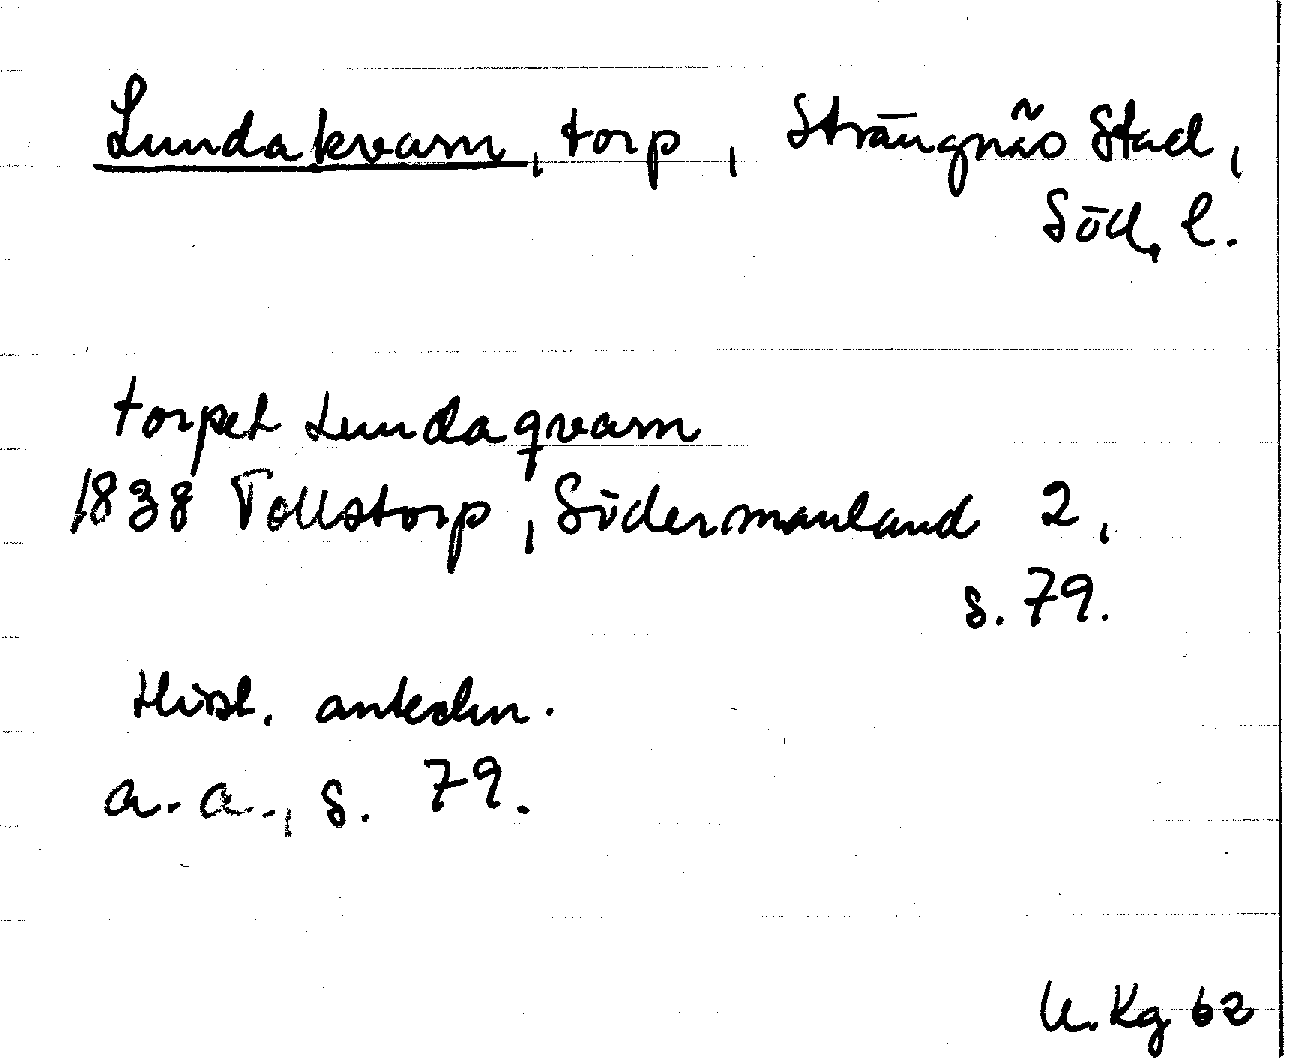 Lundakvarn, torp, Strängnäs stad,
Söd. l.
torpet Lundaqvarn
1838 Tollstorp, Södermanland 2,
s. 79.
Hist. anteckn.
a.a., s. 79.
U. Kg 62